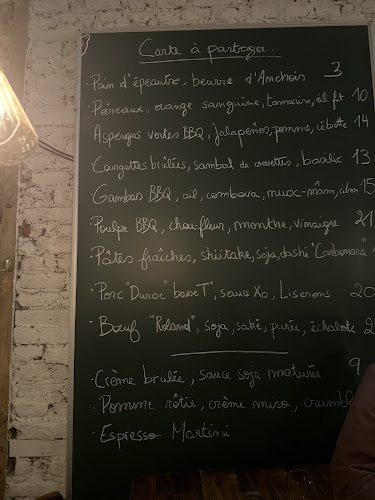 Carte à partager...
• Pain d'épeautre, beurre d'Anchois 3
• Poireaux, orange sanguine, tamarin, ail frit 10
Asperges vertes BBQ, jalapeños, pomme, cébette 14
Courgettes brûlées, sambal de crevettes, basilic 13
Gambas BBQ, ail, combava, nuoc-mâm, citron 15
Poulpe BBQ, choufleur, menthe, vinaigre 21
• Pâtes fraîches, shiitake, soja, dashi "Carbonara"
• Porc "Duroc" basse T°, sauce Xo, Liserons 20
• Bœuf "Roland", soja, saké, purée, échalote 2
• Crème brulée, sauce soja maturée 9
• Pomme rôtie, crème miso, crumbl
• Espresso Martini